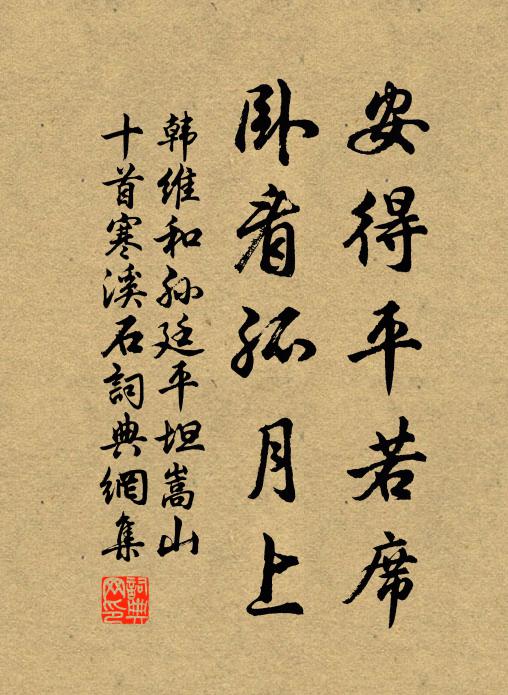 安得平若席
卧看孤月上
韩维和孙廷平坦嵩山
十首寒溪石詞典網集
詞典网印